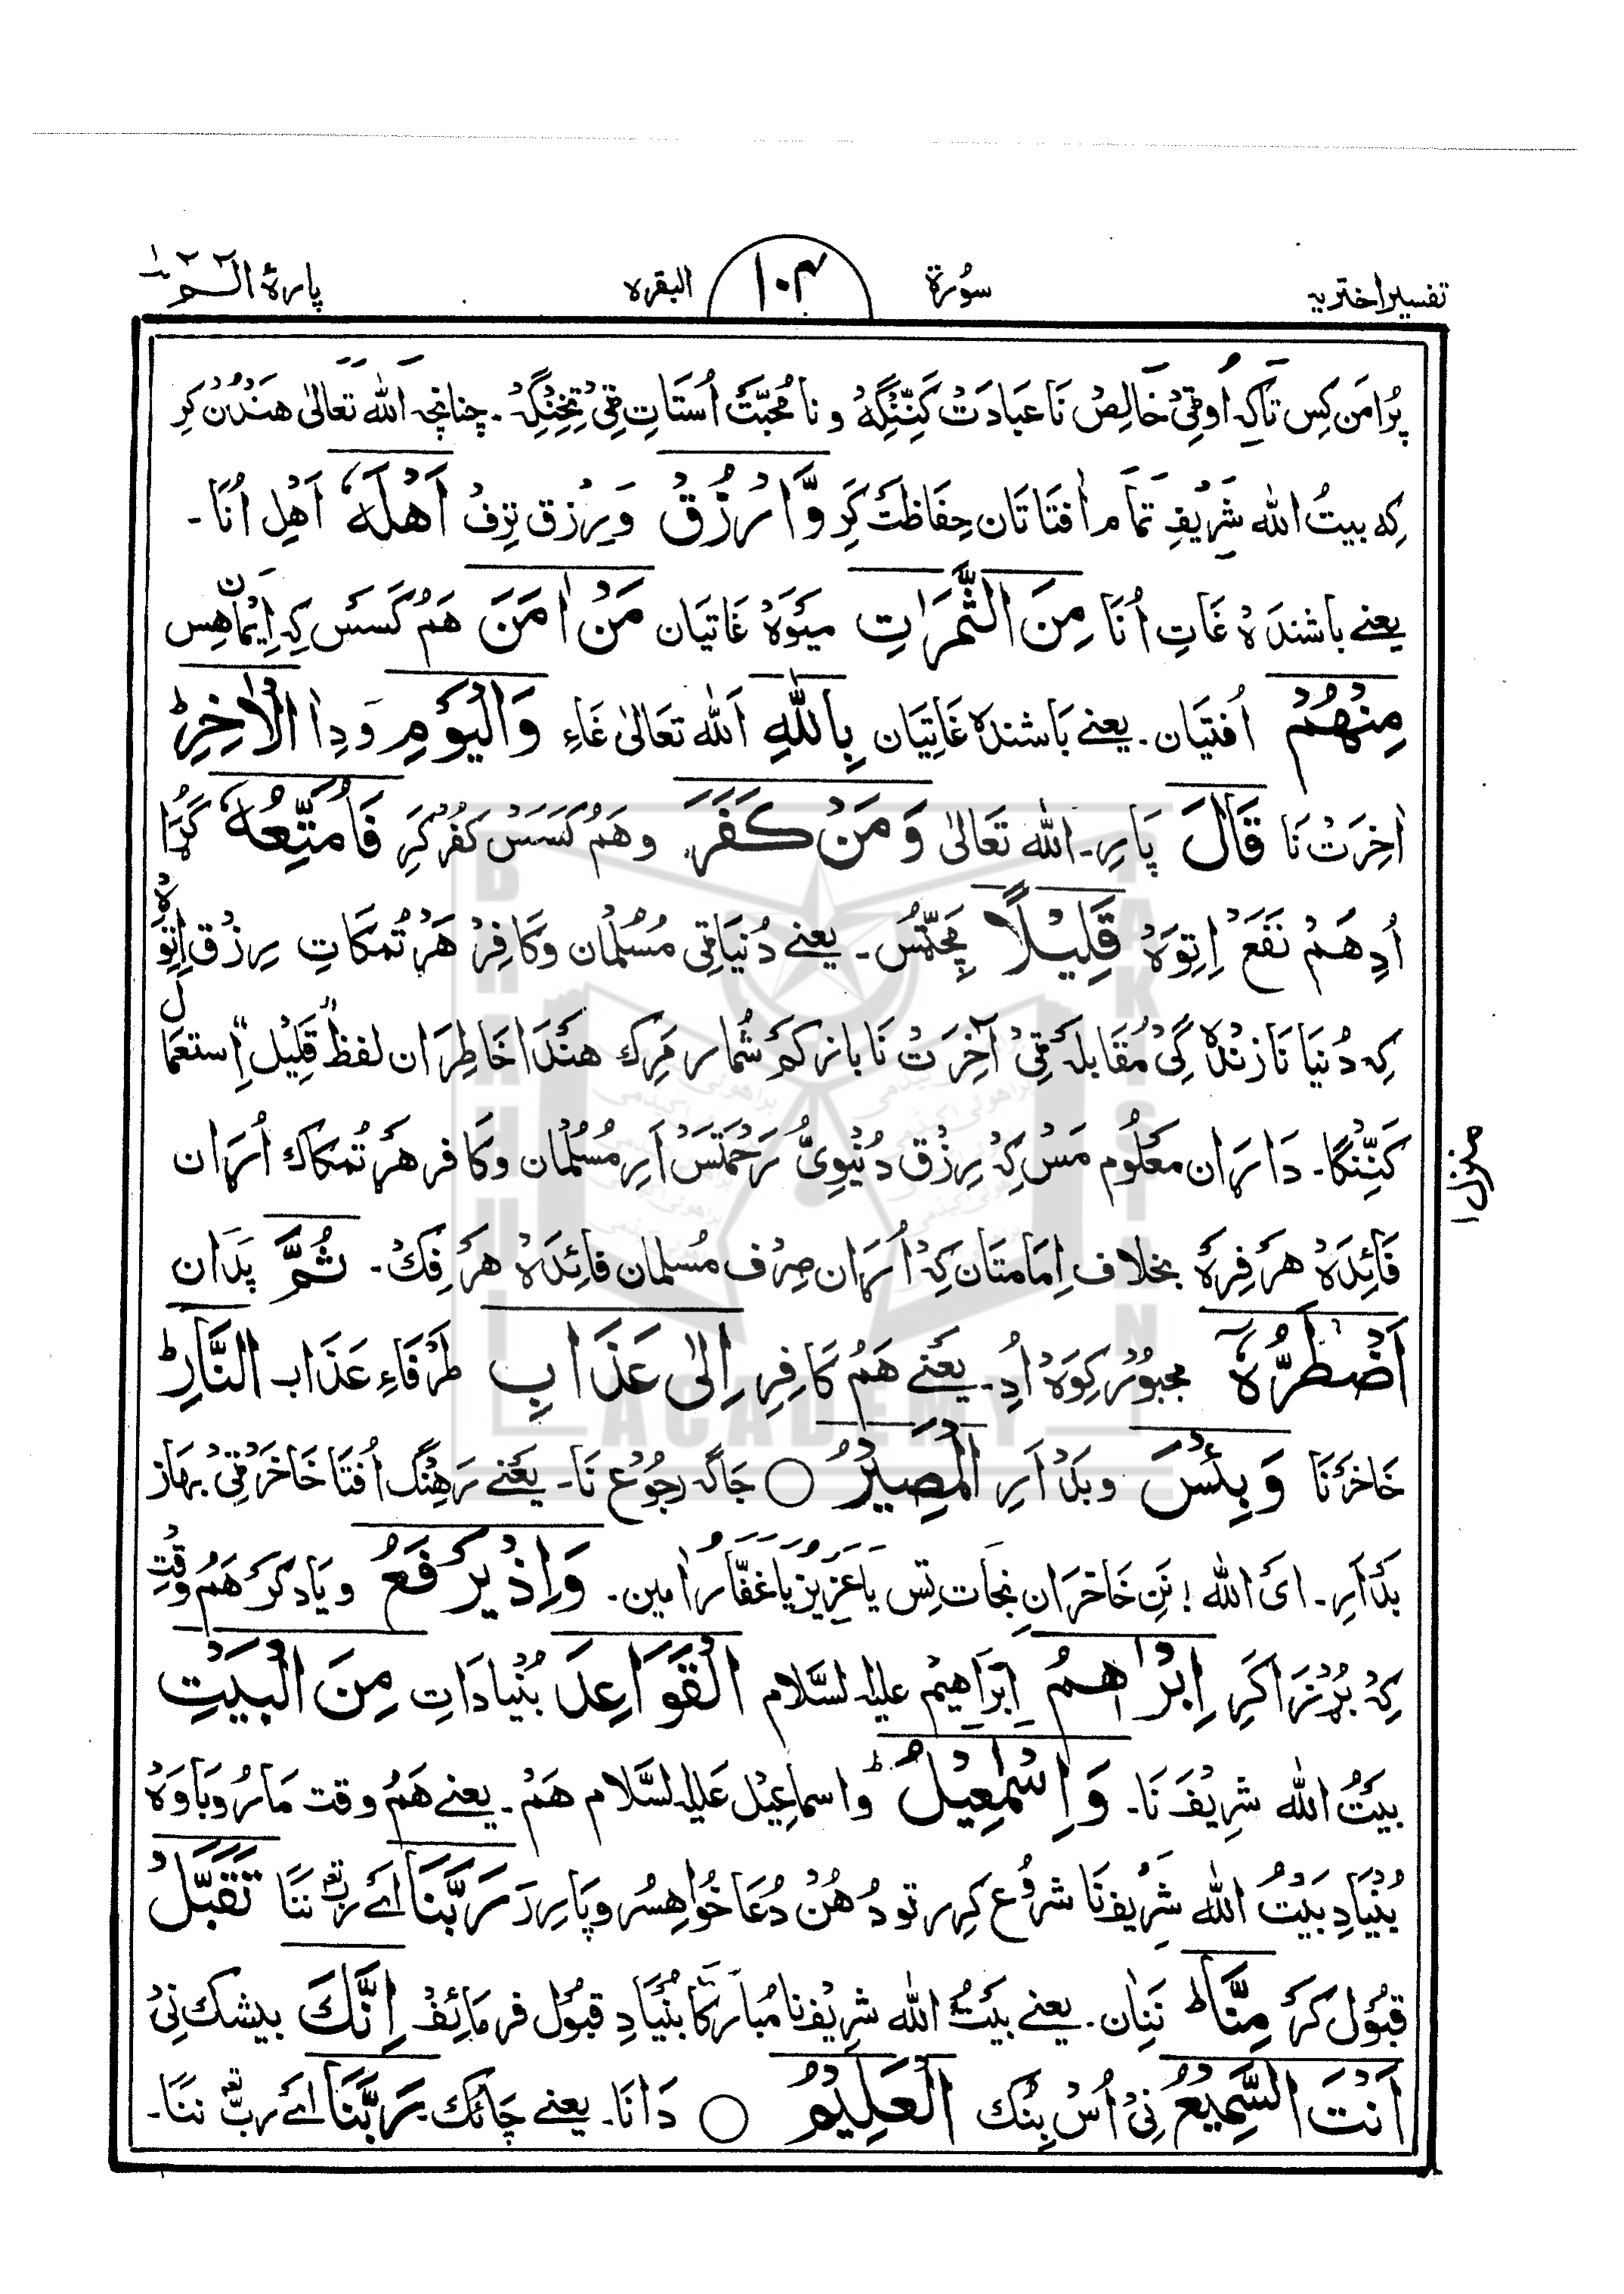 تفسیر اختریہ
سُورۃ
۱۰۴
البقرہ
پارۂ الٓمٓ ۱
پُرامَن کِس تاکِہ اُوقِیْ خَالِصْ نَا عَبَادَتْ کَنِّنْگِہْ و نا مُحبّتْ اُستَاتِ قِیْ تِخِنِگِہْ ۔ چنانچہ اَللّٰہ تَعَالٰی ھَنْدُنْ کَرِ
کِہ بیتُ اللّٰہ شَرِیْفِ تَمَام اٰفتَاتَان حِفَاظَتْ کَرِ وَّارْزُقْ وَرِزْق تِرِفْ اَهْلَهٗ اَهْلِ اُنَا۔
یعنے باشندَہْ غَاتِ اُنَا مِنَ الثَّمَرٰتِ میْوَہْ غَاتیَان مَنْ اٰمَنَ هَمْ کَسَسْ کِہ اِیْمَان هِس
مِنْهُمْ اُفتیَان۔ یعنے بَاشندَہ غَاتِیَان بِاللّٰهِ اَللّٰہ تَعَالٰی غَاءِ وَالْیَوْمِ وَدِا الْاٰخِرِؕ
اٰخِرَتْ نَا قَالَ پَارِ۔ اللّٰہ تَعَالٰی وَمَنْ کَفَرَ وهَمْ کَسَسْ کُفْر کَرِ فَاُمَتِّعُهٗ گُڑَا
اُدِ هَمْ نَفَعْ اِتِوَہْ قَلِیْلًا مَچِّتْسْ۔ یعنے دُنیَاقِی مُسْلْمَان وَکَافِرْ هَرْتُمکَاتِ رِزْق اِتِوہْ
کِہ دُنیَا نَا زِنْدَہ گِیْ مُقَابلَہ قِیْ آخِرَتْ نَا بازکَمْ شُمار مَرِک هَنْدَا خَاطِرَان لفظ "قَلِیْل" اِستعمال
کَنِّنْگا۔ دَارَان معْلُوم مَسْ کِہْ رِزْق دُنْیوِیْ رَحْمَتَسْ اَرِ مُسْلْمَان وَکَافر هَرْتُمکاک اُرَان
فَائِدَہْ هَرْفِرَہْ بخلاف اِمَامتَان کِہْ اُرَان صِرْف مُسلمان فائِدَہْ هَرْفِکْ۔ ثُمَّ پَدَان
اَضْطَرُّهٗۤ مجبُوْر کِوَہْ اُدِ۔ یعْنے هَمْ کَافِرِ اِلٰی عَذَابِ طَرْفَاءِ عَذَابِ النَّارِؕ
خَاخَرْ نَا وَبِئْسَ وبَدْ اَرِ الْمَصِیْرُ ○ جَاگَہ رجُوْع نَا۔ یعْنے رَهِنْگ اُفتَا خَاخَرْقِیْ بھاز
بَدْ اَرِ۔ ایْ اَللّٰہ! نَنِ خَاخَرَان نِجَات تِس یَاعَزِیْز یَاغَفَّارُ اٰمین۔ وَاِذْ یَرْفَعُ ویَادکَرْ هَمْ وقْتِ
کِہْ بُرْنَز اکَرِ اِبْرٰهٖمُ اِبْرَاهِیْم علیہ لسَّلام الْقَوَاعِدَ بُنْیادَاتِ مِنَ الْبَیْتِ
بیْتُ اللّٰہ شَرِیْف نَا۔ وَاِسْمٰعِیْلُؕ وَاسماعِیْل عَلَیہ لسَّلام هَمْ۔ یعنے هَمْ وقت مَارُ وبَاوَہْ
بُنْیَادِ بَیْتُ اللّٰہ شَرِیْف نَا شُرُوْع کَرِر تو دُهُنْ دُعَا خُواهِسُر وپَارِرَ رَبَّنَا اَے رَبّ نَنَا تَقَبَّلْ
قبُوْل کَرْ مِنَّاؕ نَنِان۔ یعنے بیْتُ اللّٰہ شرِیْف نا مُبارَکا بُنْیَادِ قبُوْل فرمائِفْ اِنَّکَ بیشک نِیْ
اَنْتَ السَّمِیْعُ نِیْ اُسْ بِنُک الْعَلِیْمُ ○ دَانَا۔ یعنے چَائک رَبَّنَا اَے رَبّ نَنَا۔
منزل ۱
BRAHUI
ACADEMY
PAKISTAN